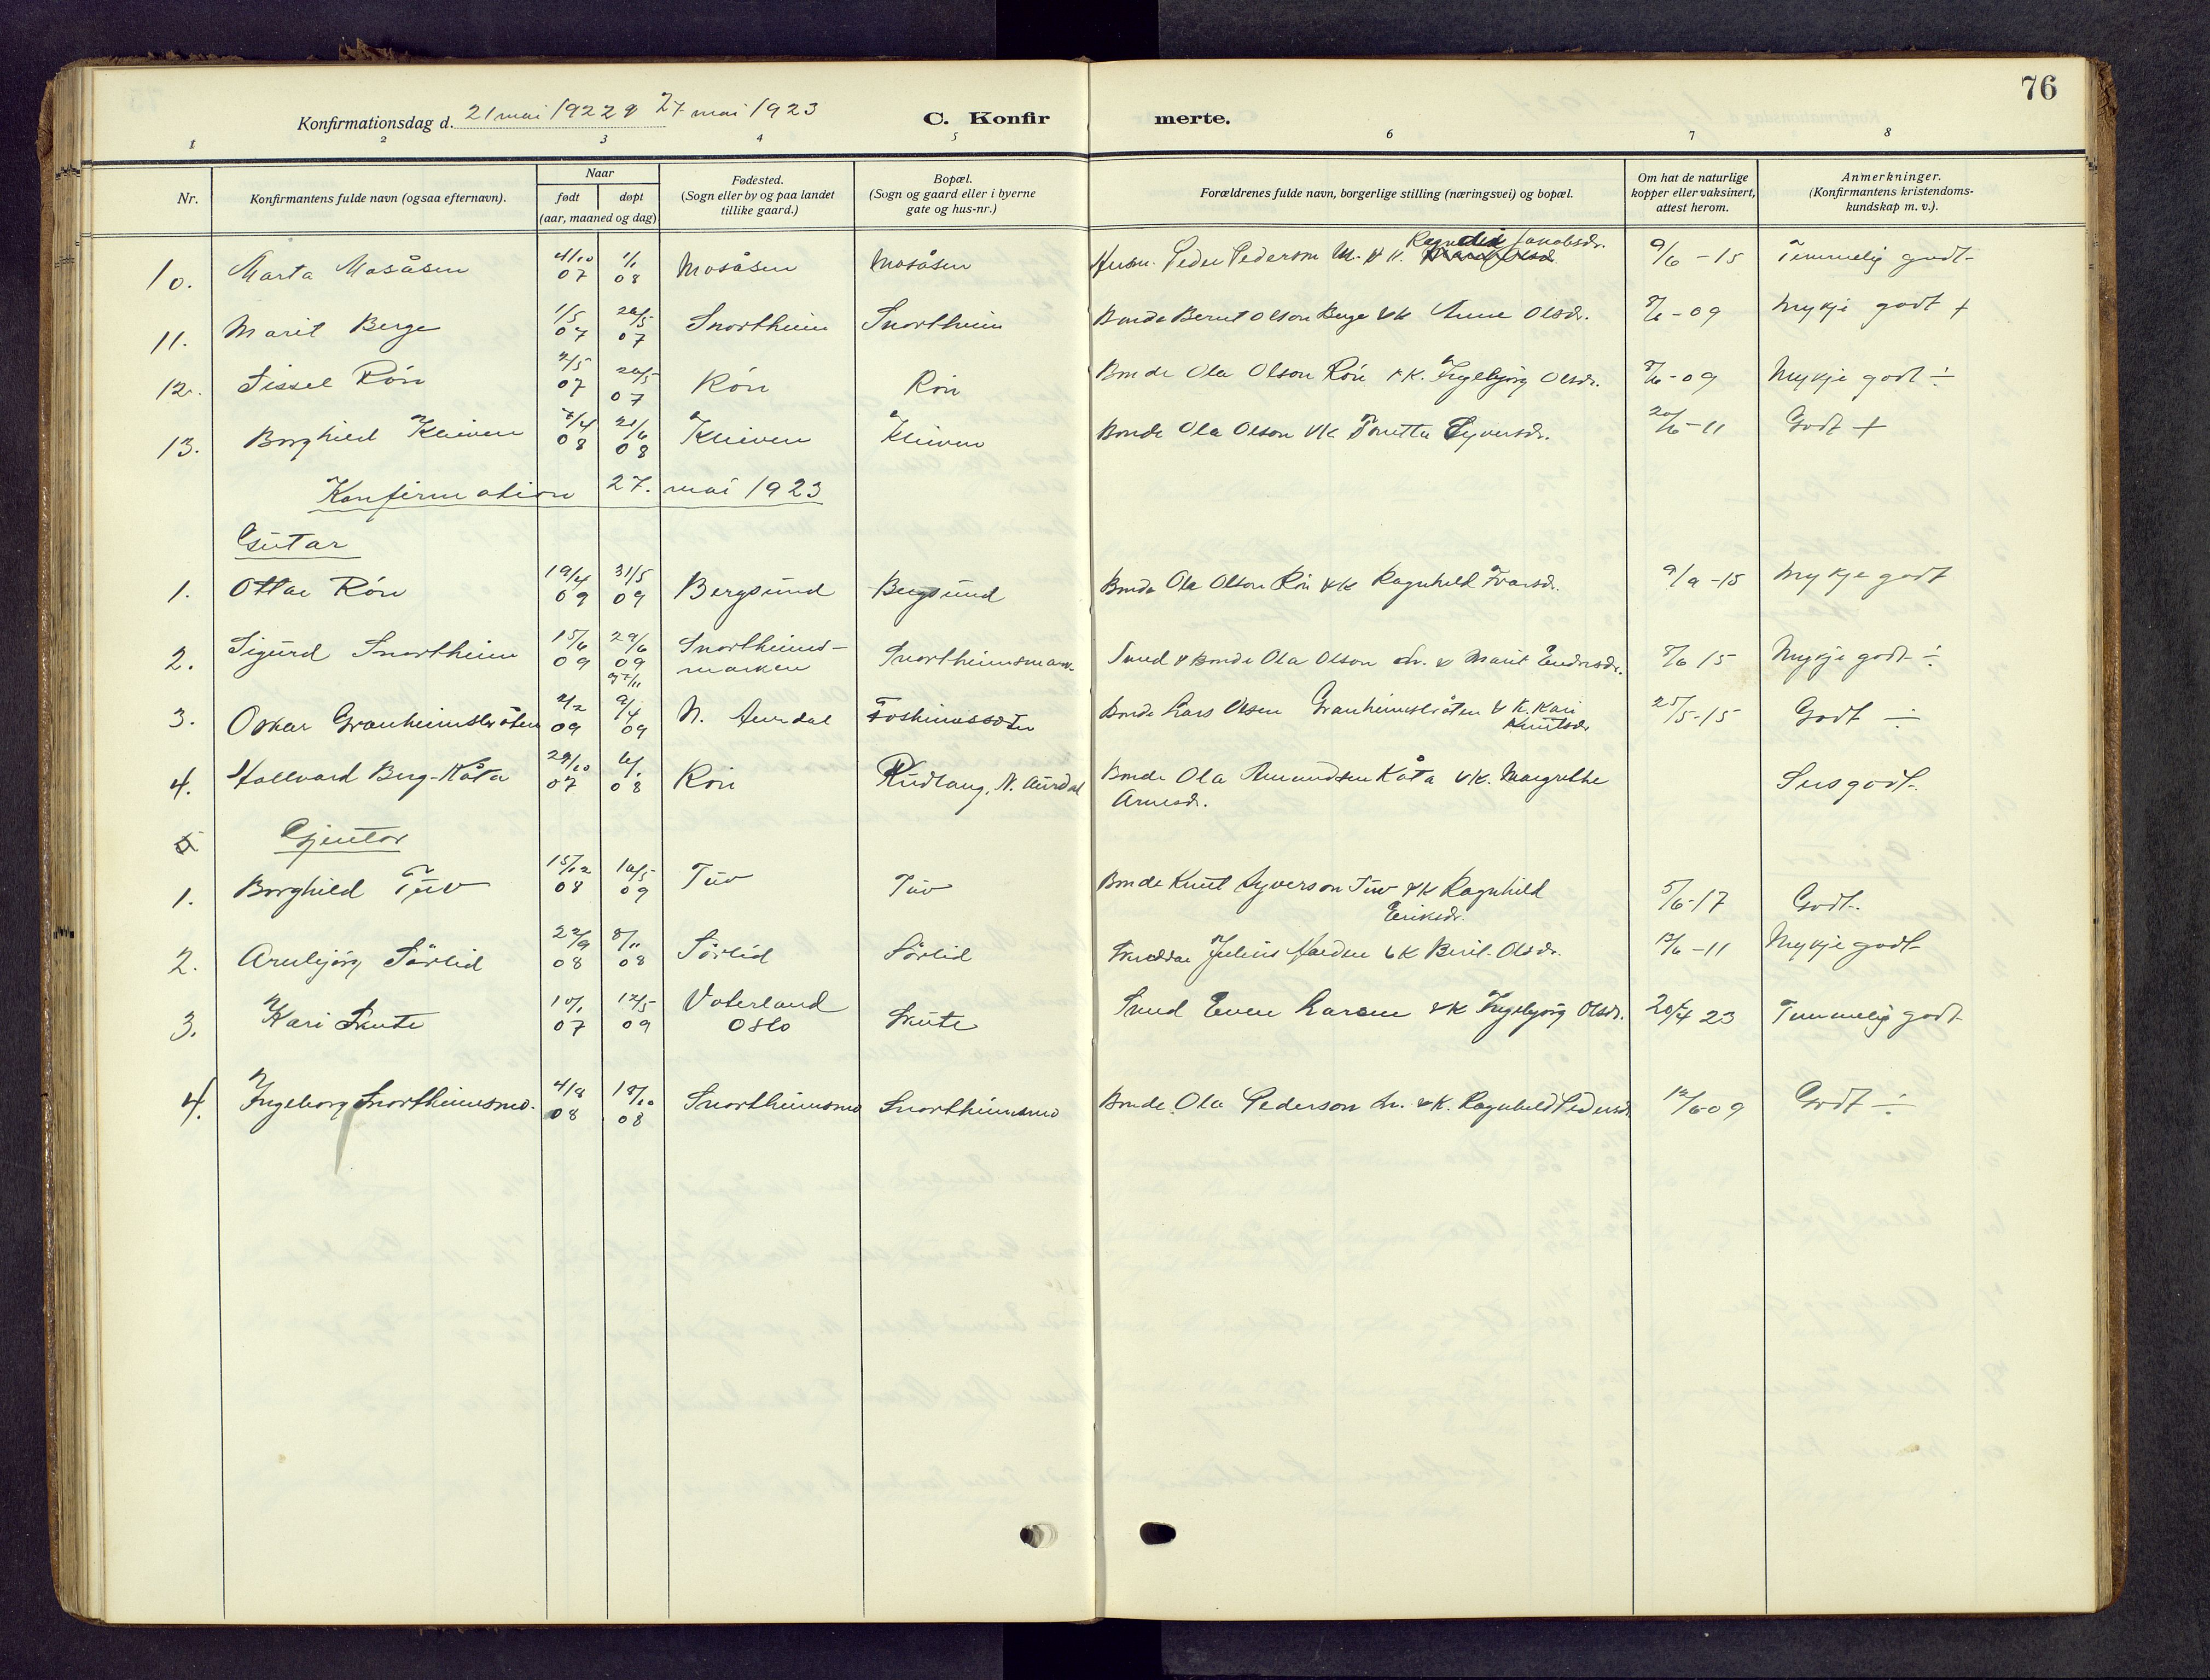 76
Konfirmationsdag d. 21 mai 1922 & 27 mai 1923
C. Konfirmerte.
1 2 3 4 5 6 7 8
Nr.
Konfirmantens fulde navn (ogsaa efternavn).
Naar
født døpt
(aar, maaned og dag)
Fødested.
(Sogn eller by og paa landet
tillike gaard.)
Bopæl.
(Sogn og gaard eller i byerne
gate og hus-nr.)
Forældrenes fulde navn, borgerlige stilling (næringsvei) og bopæl.
Om hat de naturlige
kopper eller vaksinert,
attest herom.
Anmerkninger.
(Konfirmantens kristendoms-
kundskap m. v.).
10. Marta Mosåsen 4/10 07 1/1 08 Mosåsen Mosåsen Husm. Peder Pederson M. & K. Jacobsdr. 9/6 - 15 Temmelig godt
11. Marit Berge 1/5 07 20/5 07 Snortheim Snortheim Bonde Bernt Olson Berge & K Anne Olsdr. 8/6 - 09 Mykje godt +
12. Sissel Røn 2/5 07 20/5 07 Røn Røn Bonde Ola Olson Røn & K. Ingebjørg Olsdr. 8/6 - 09 Mykje godt ÷
13. Borghild Kleiven 7/4 08 21/6 08 Kleiven Kleiven Bonde Ola Olson & K Toretta Syversdr. 20/6 - 11 Godt +
Konfirmation 27. mai 1923
Gutar
1. Ottar Røn 19/4 09 31/5 09 Bergsund Bergsund Bonde Ola Olson Røn & K Ragnhild Ivarsdr. 9/9 - 15 Mykje godt
2. Sigurd Snortheim 15/6 09 29/6 09 Snortheims-
marken Snortheimsmark Smed & Bonde Ola Olson & Marit Endresdr. 8/6 15 Mykje godt ÷
3. Oskar Granheimsbråten 2/2 09 9/4 09 N. Aurdal Bonde Lars Olsen Granheimsbråten & K. Kari
Knutsdr 25/5 - 15 Godt ÷
4. Hallvard Berg-Kåta 29/10 07 08 Røn Rudlang, N. Aurdal Bonde Ola Amundsen Kåta & K. Margrethe
Arnesdr. Susgodt
5
Gjentor
1. Borghild Tuv 15/12 08 16/5 09 Tuv Tuv Bonde Knut Syverson Tuv & K Ragnhild
Eriksdr. 5/6 - 17 Godt.
2. Arnbjørg Sørlid 22/9 08 8/11 08 Sørlid Sørlid Julius & K Berit Olsdr. 12/6 - 11 Mykje godt
3. Kari Skute 10/1 07 12/5 09 Vaterland
Oslo Skute Smed Even Larsen & K Ingebjørg Olsdr. 20/4 23 Temmelig godt
4. Ingeborg Snortheimsmo. 4/8 08 18/10 08 Snortheimsmo Snortheimsmo Bonde Ola Pederson Sn. & K. Ragnhild Pedersdr 12/6 09 Godt ÷